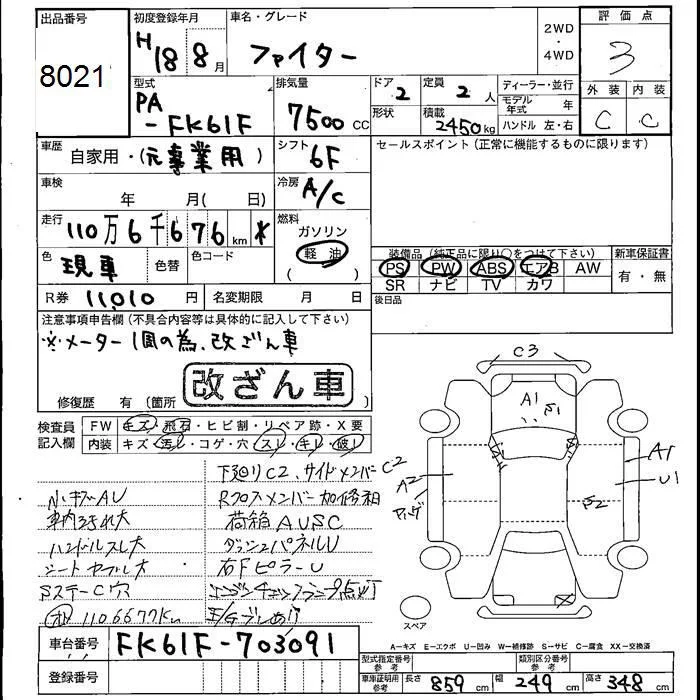 出品番号
8021
初度登録年月
H18 8月
車名・グレード
ファイター
2WD
・
4WD
評価点
3
外装 内装
C C
型式
PA
-FK61F
排気量
7500cc
ドア 2
形状
定員 2人
積載 2450kg
ディーラー・並行
モデル年式 年
ハンドル 左・右
車歴 自家用・(元事業用)
シフト 6F
セールスポイント(正常に機能するものに限ります)
車検 年 月( 日)
冷房 A/C
走行 110万6千676km *
燃料
ガソリン
軽油
( )
色 現車
色替
色コード
装備品(純正品に限り○をつけて下さい)
PS PW ABS エアB AW
SR ナビ TV カワ
新車保証書
有・無
R券 11,010円
名変期限 月 日
後日品
注意事項申告欄(不具合内容等は具体的に記入して下さい)
※メーター1周の為、改ざん車
改ざん車
修復歴 有(箇所
検査員記入欄
FW キズ・飛石・ヒビ割・リペア跡・X要
内装 キズ・汚レ・コゲ・穴・スレ・キレ・破レ
下廻りC2、サイドメンバーC2
N、キズAU
Rクロスメンバー加修相
車内ヨゴレ大
荷箱AUSC
ハンドルスレ大
ダッシュパネルU
シートヤブレ大
右FピラーU
SステーC穴
エンジンチェックランプ点灯
1106677Km
E/Gブレ有り
C3
A1
S1
A2
A1
U1
S2
スペア
車台番号 FK61F-703091
登録番号
A-キズ E-エクボ U-凹み W-補修跡 S-サビ C-腐食 XX-交換済
型式指定番号
類別区分番号
車庫証明用参考 長さ 859cm 幅 249cm 高さ 348cm